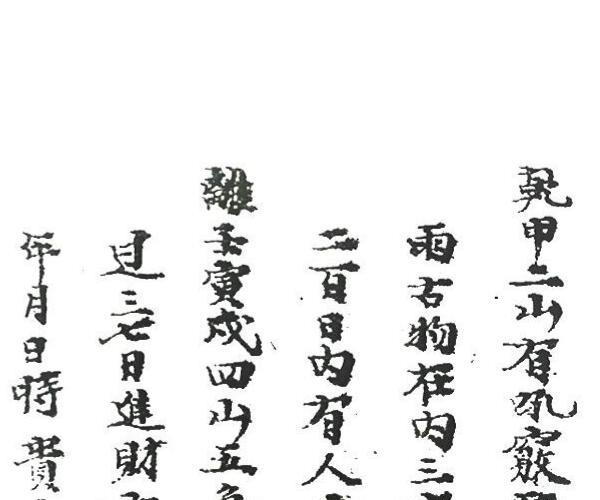 乾甲二山有吼竅
雨古物在内三
二百日内有人
離壬寅戍四山五
过三七日進財
年月日時貴